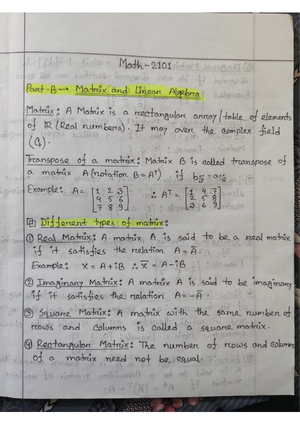 Math-2101
Part-B→ Matrix and Linear Algebra
Matrix: A Matrix is a rectangular array/table of elements
of ℝ (Real numbers). It may over the complex field
(ℂ).
Transpose of a matrix: Matrix B is called transpose of
a matrix A (notation B=Aᵗ), if bᵢⱼ = aⱼᵢ
Example: A = [1 2 3 ∴ Aᵗ = [1 4 7
4 5 6 2 5 8
7 8 9] 3 6 9]
Different types of matrix:
① Real Matrix: A matrix A is said to be a real matrix
if it satisfies the relation A = Ā.
Example: X = A+iB ∴ X̄ = A-iB
② Imaginary Matrix: A matrix A is said to be imaginary
if it satisfies the relation A = -Ā.
③ Square Matrix: A matrix with the same number of
rows and columns is called a square matrix.
④ Rectangular Matrix: The number of rows and columns
of a matrix need not be equal.